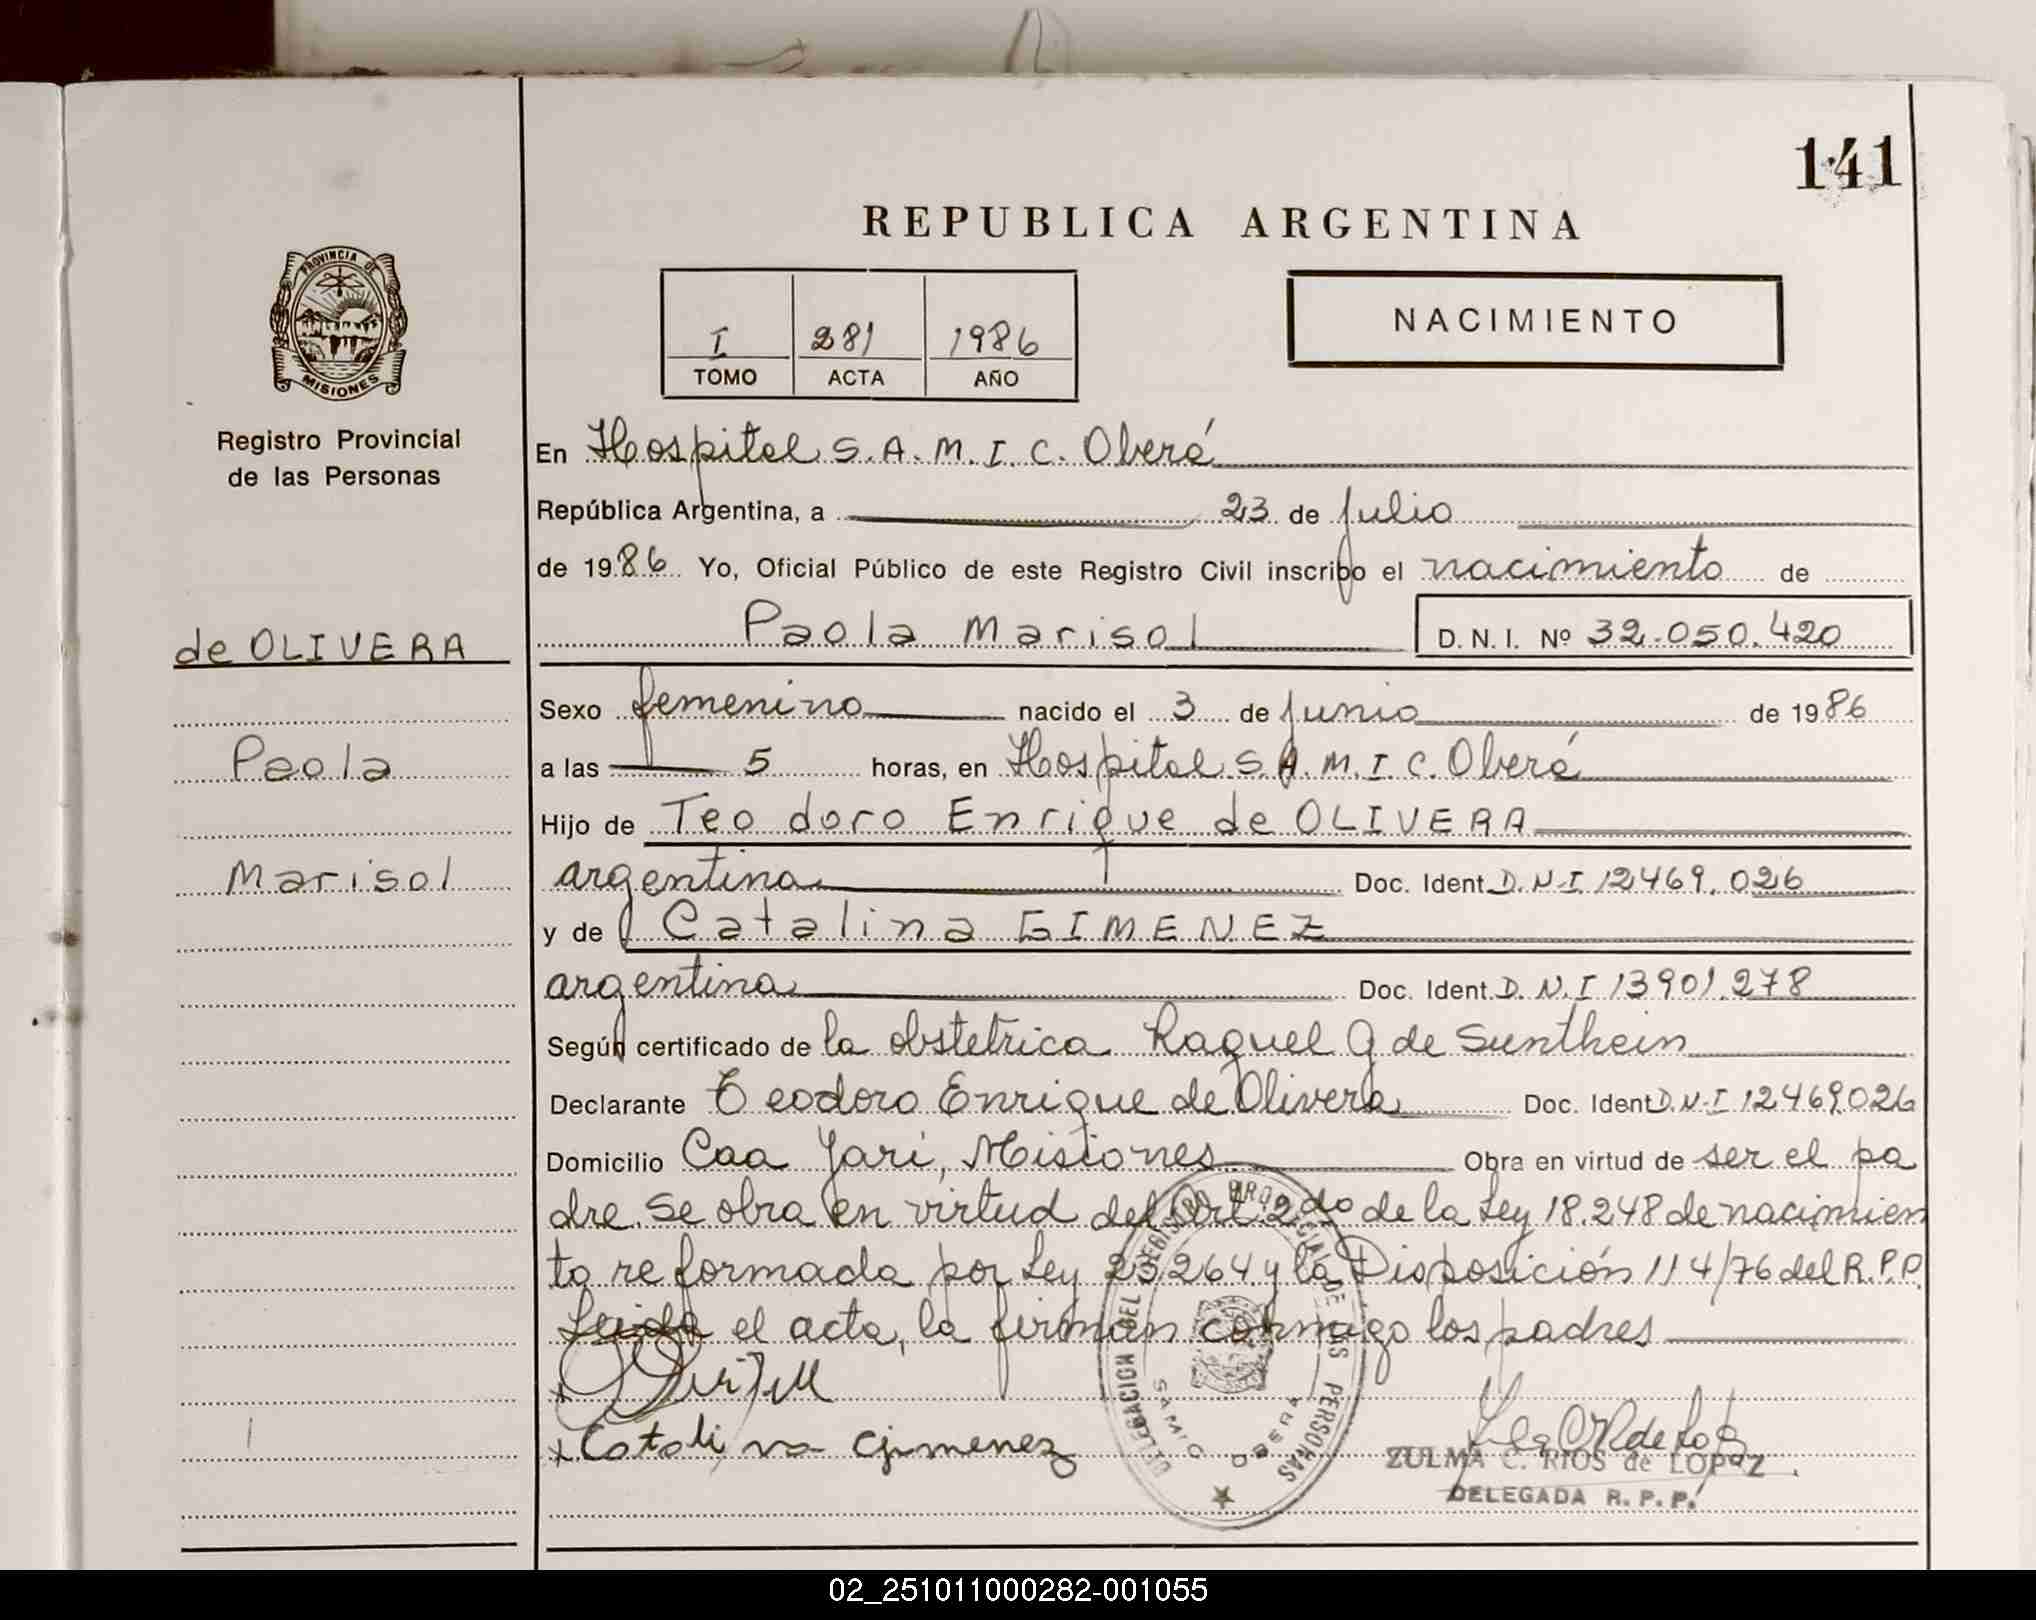 141
REPUBLICA ARGENTINA
PROVINCIA DE
MISIONES
Registro Provincial
de las Personas
I 281 1986
TOMO ACTA AÑO
NACIMIENTO
En Hospital S.A.M.I.C. Oberá
República Argentina, a 23 de julio
de 1986 Yo, Oficial Público de este Registro Civil inscribo el nacimiento de
Paola Marisol D.N.I. Nº 32.050.420
de OLIVERA
Paola
Marisol
Sexo femenino nacido el 3 de junio de 1986
a las 5 horas, en Hospital S.A.M.I.C. Oberá
Hijo de Teodoro Enrique de OLIVERA
argentina Doc. Ident. D.N.I 12469.026
y de Catalina GIMENEZ
argentina Doc. Ident. D.N.I 13901.278
Según certificado de la obstetrica Raquel G de Sunthein
Declarante Teodoro Enrique de Olivera Doc. Ident D.N.I 12469026
Domicilio Caa Yari, Misiones Obra en virtud de ser el pa
dre. Se obra en virtud del Art 2do de la Ley 18.248 de nacimien
to reformada por Ley 23264 y la Disposición 114/76 del R.P.P.
Leida el acta, la firman conmigo los padres
x
x Catalina Gimenez
DELEGACION DEL REGISTRO PROVINCIAL DE LAS PERSONAS
SAMIC OBERA
ZULMA C. RIOS de LOPEZ
DELEGADA R.P.P.
02_251011000282-001055